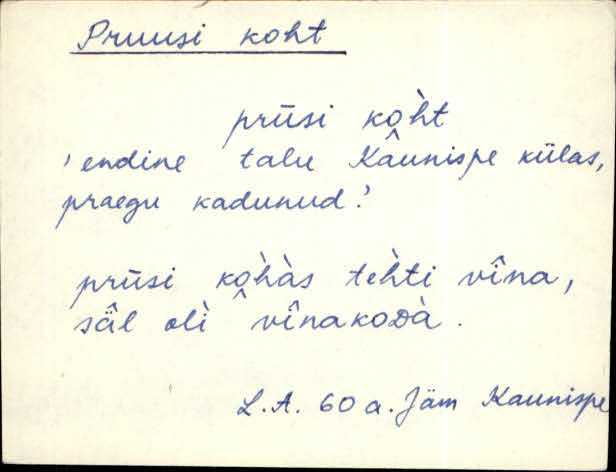 Pruusi koht
prūsi ko̭h̀t
'endine talu Kaunispe külas,
praegu kadunud.'
prūsi ko̭h̀às teh̀ti vîna,
sä̂l olì vînakoᴅà.
L.A. 60 a. Jäm Kaunispe